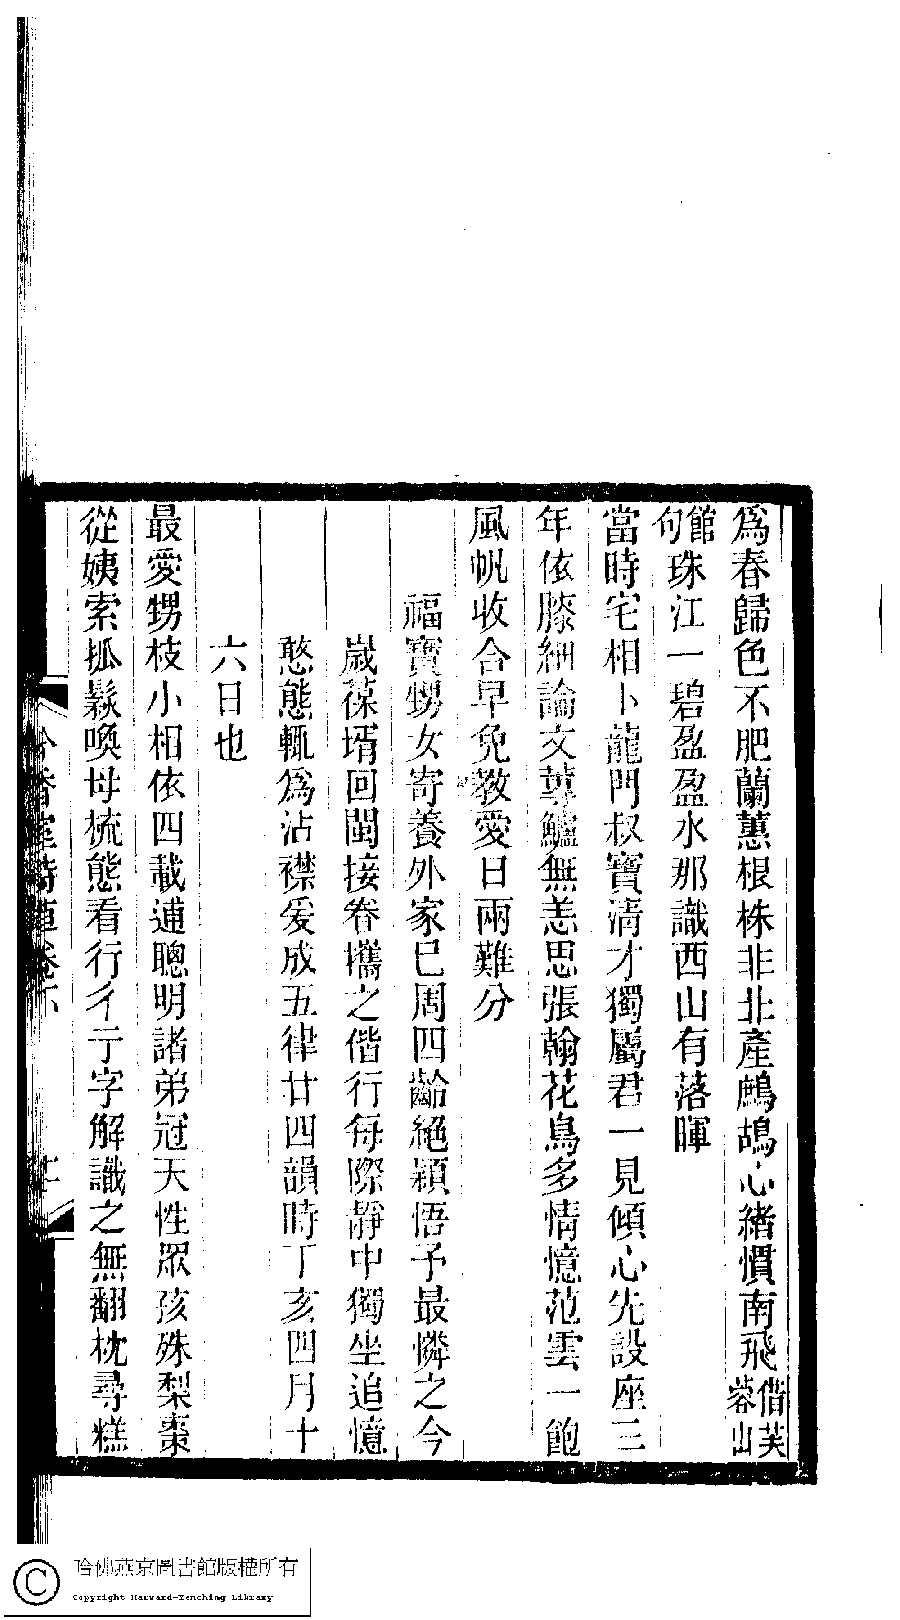 爲春歸色不肥蘭蕙根株非北產鷓鴣心緒慣南飛借芙蓉山
館句珠江一碧盈盈水那識西山有落暉
當時宅相卜龍門叔寶清才獨屬君一見傾心先設座三
年依膝細論文蓴鱸無恙思張翰花鳥多情憶范雲一飽
風帆收合早免教愛日兩難分
福寶甥女寄養外家已周四齡絕穎悟予最憐之今
歲葆壻回閩接眷攜之偕行每際靜中獨坐追憶
憨態輒爲沾襟爰成五律廿四韻時丁亥四月十
六日也
最愛甥枝小相依四載逋聰明諸弟冠天性眾孩殊梨棗
從姨索抓鬆喚母梳態看行彳亍字解識之無翻枕尋糕
香室詩 卷下
哈佛燕京圖書館版權所有
Copyright Harvard-Yenching Library